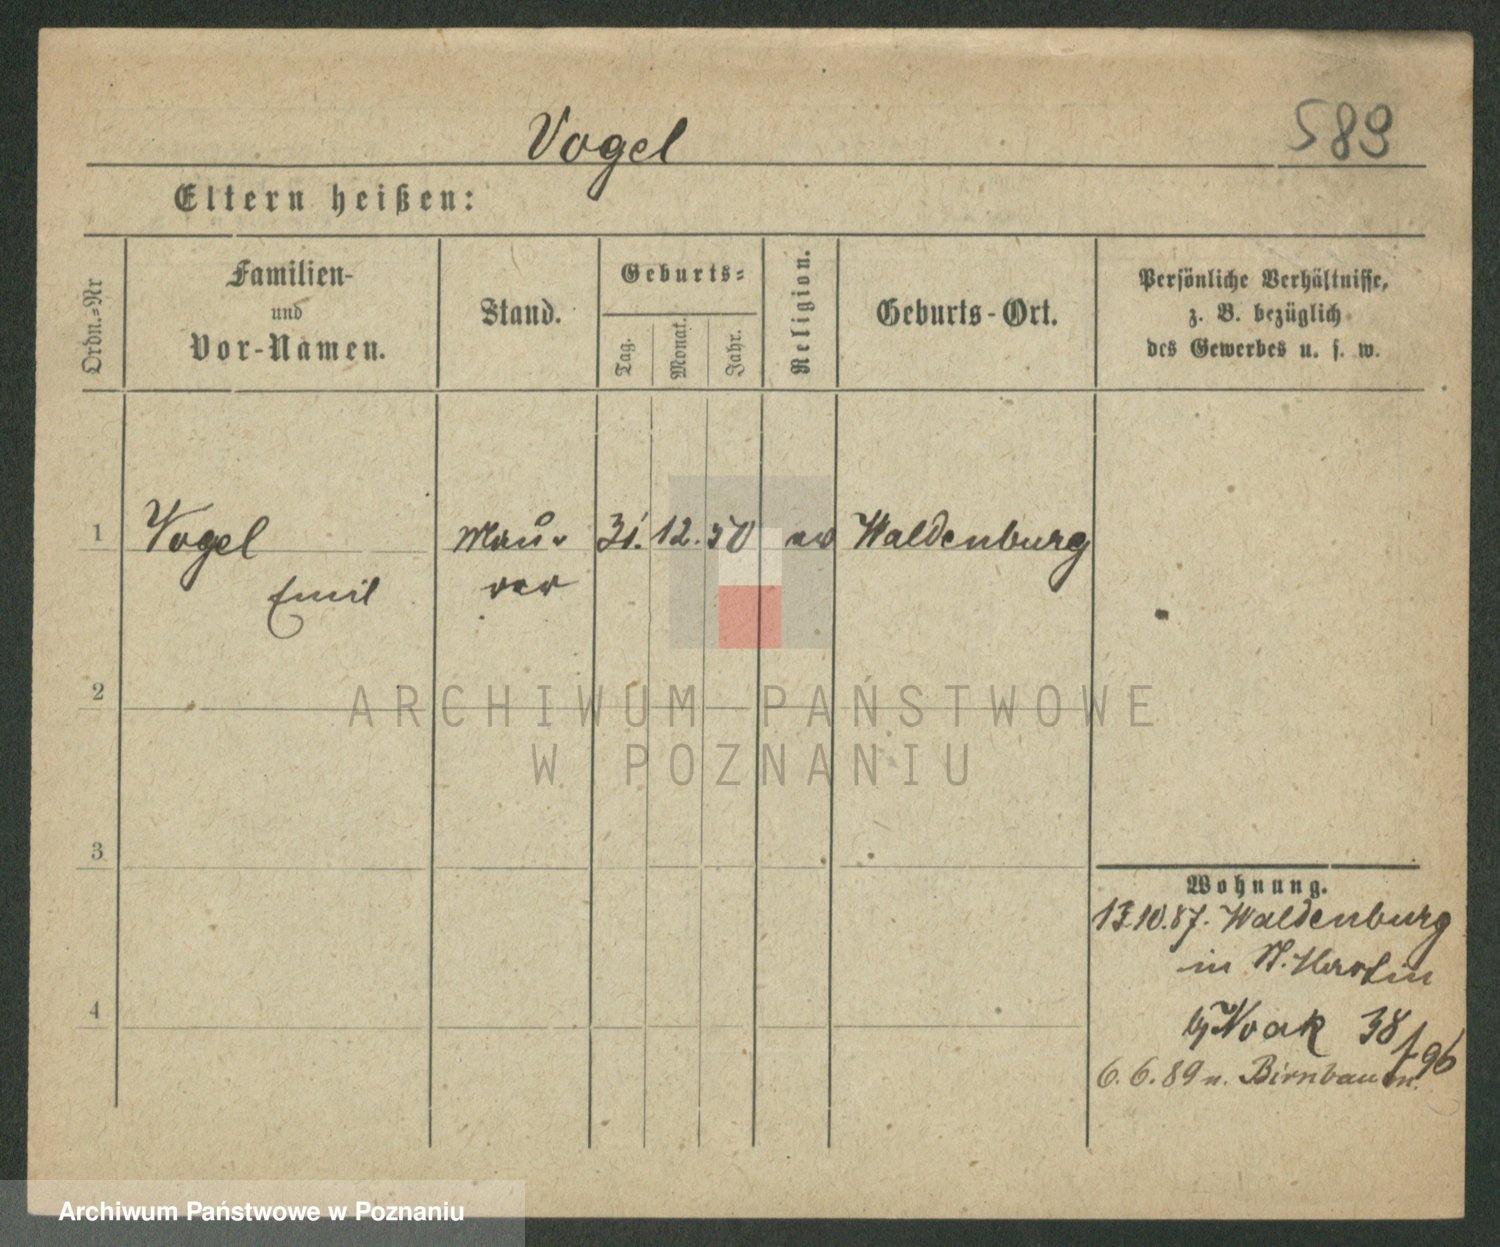 Vogel
589
Eltern heißen:
Ordn.-Nr
Familien-
und
Vor-Namen.
Stand.
Geburts-
Tag.
Monat.
Jahr.
Religion.
Geburts-Ort.
Persönliche Verhältnisse,
z. B. bezüglich
des Gewerbes u. s. w.
1
Vogel
Emil
Mau-
rer
31. 12. 50
ev
Waldenburg
2
ARCHIWUM PAŃSTWOWE
W POZNANIU
3
Wohnung.
13.10.87. Waldenburg
in
4
Noak 38/96
6.6.89 n. Birnbaum.
Archiwum Państwowe w Poznaniu